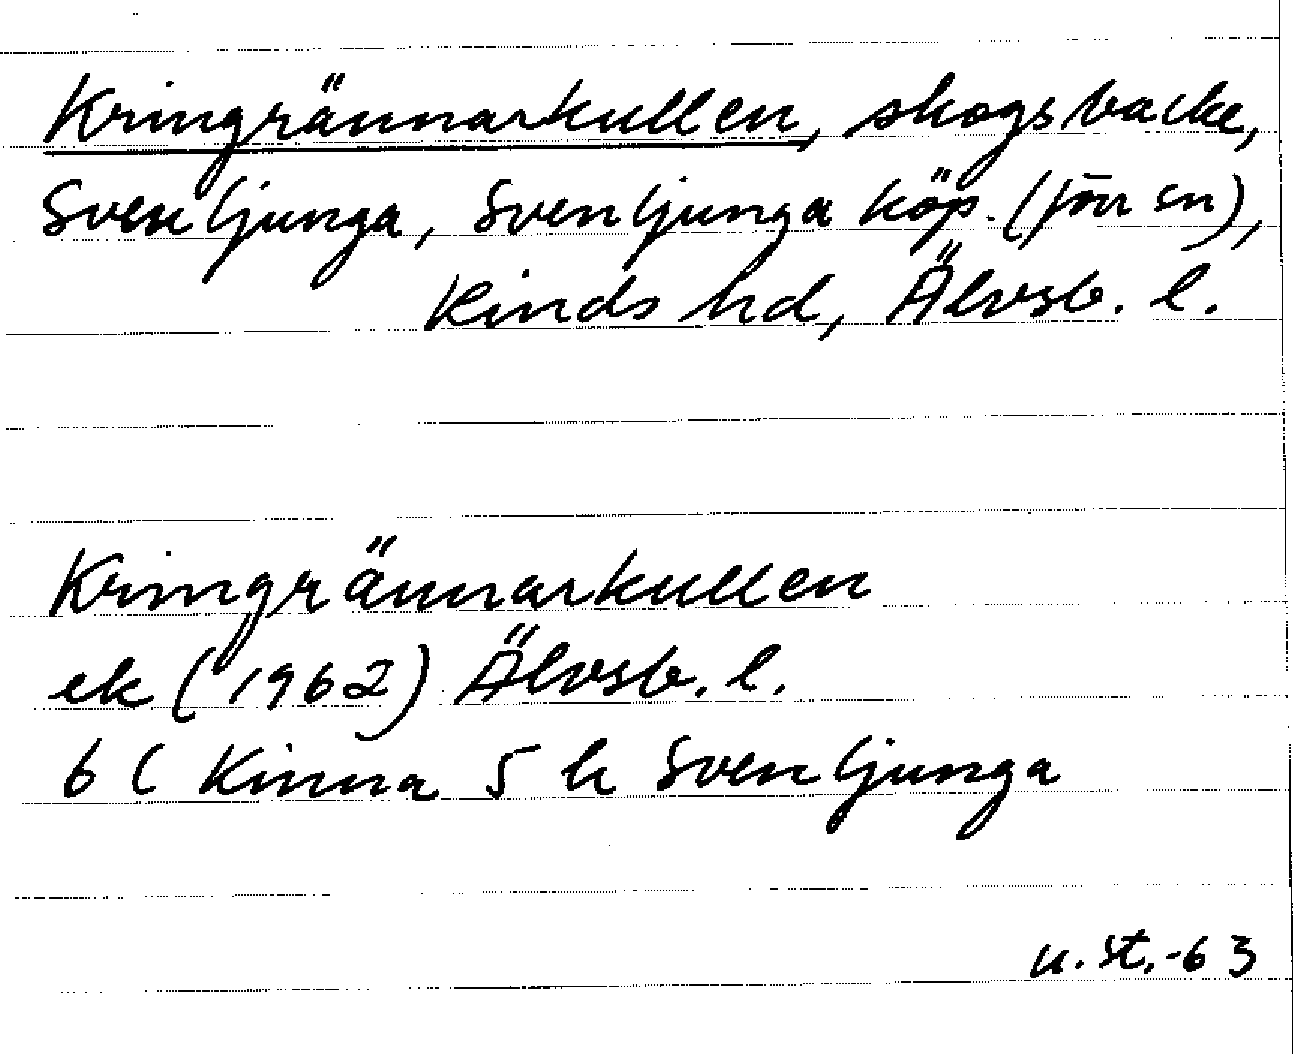 Kringrännarkullen, skogsbacke,
Svenljunga, Svenljunga köp. (förr sn),
Kinds hd, Älvsb. l.
Kringrännarkullen
ek (1962) Älvsb. l.
6 C Kinna 5 h Svenljunga
u. st. -63